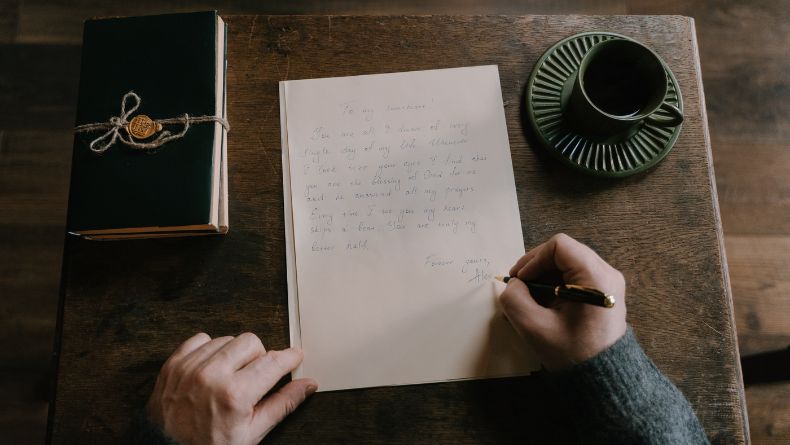 To my sunshine!
You are all I dream of every
single day of my life. Whenever
I look into your eyes I find that
you are the blessing of God for me
and he answered all my prayers.
Every time I see you my heart
skips a beat. You are truly my
better half.
Forever yours,
Alex